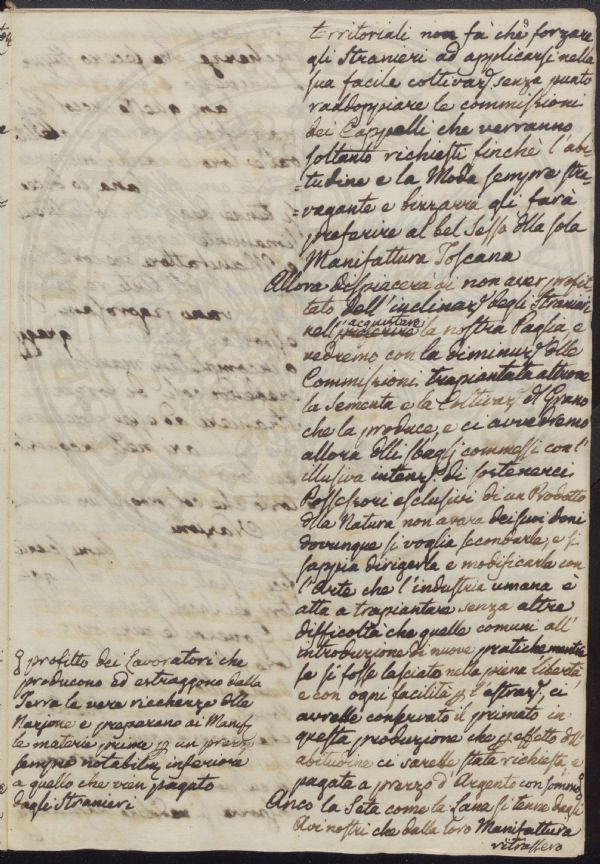 9
territoriali non fà che forzare
gli Stranieri ad applicarsi nella
sua facile coltivaz.e senza punto
raddoppiare le commissioni
dei Cappelli che verranno
soltanto richiesti finchè l'abi=
=tudine e la Moda sempre stra=
=vagante e bizzarra gli farà
preferire al bel Sesso dlla sola
Manifattura Toscana
Allora dispiacerà di non aver profit
tato dell'inclinaz.e degli Stranieri
nell'acquistare la nostra Paglia e
vedremo con la diminuz.e dlle
Commissioni trapiantata altrove
la sementa e la Coltivaz. dl Grano
che la produce, e ci avvedremo
allora dlli sbagli commessi con l'
illusiva intenz.e di sostenerci
Possessori esclusivi di un Prodotto
dlla Natura non avara dei suoi doni
dovunque si voglia secondarla, e si
sappia dirigerla e modificarla con
l'Arte che l'industria umana è
atta a trapiantare senza altre
difficoltà che quelle comuni all'
introduzione di nuove pratiche mentre
se si fosse lasciato nella piena libertà
e con ogni facilità p l'estraz.e ci
avrebbe conservato il primato in
questa produzione che p effetto dll'
abitudine ci sarebbe stata richiesta, e
pagata a prezzo d'Argento con sommo
p profitto dei Lavoratori che
producono ed estraggono dalla
Terra le vere ricchezze dlla
Nazione e preparano ai Manif.
le materie prime p un prezzo
sempre notabilm. inferiore
a quello che vien pagato
dagli Stranieri
Anco la Seta come la Lana si tenne dagli
Avi nostri che dalla loro Manifattura
ritrassero